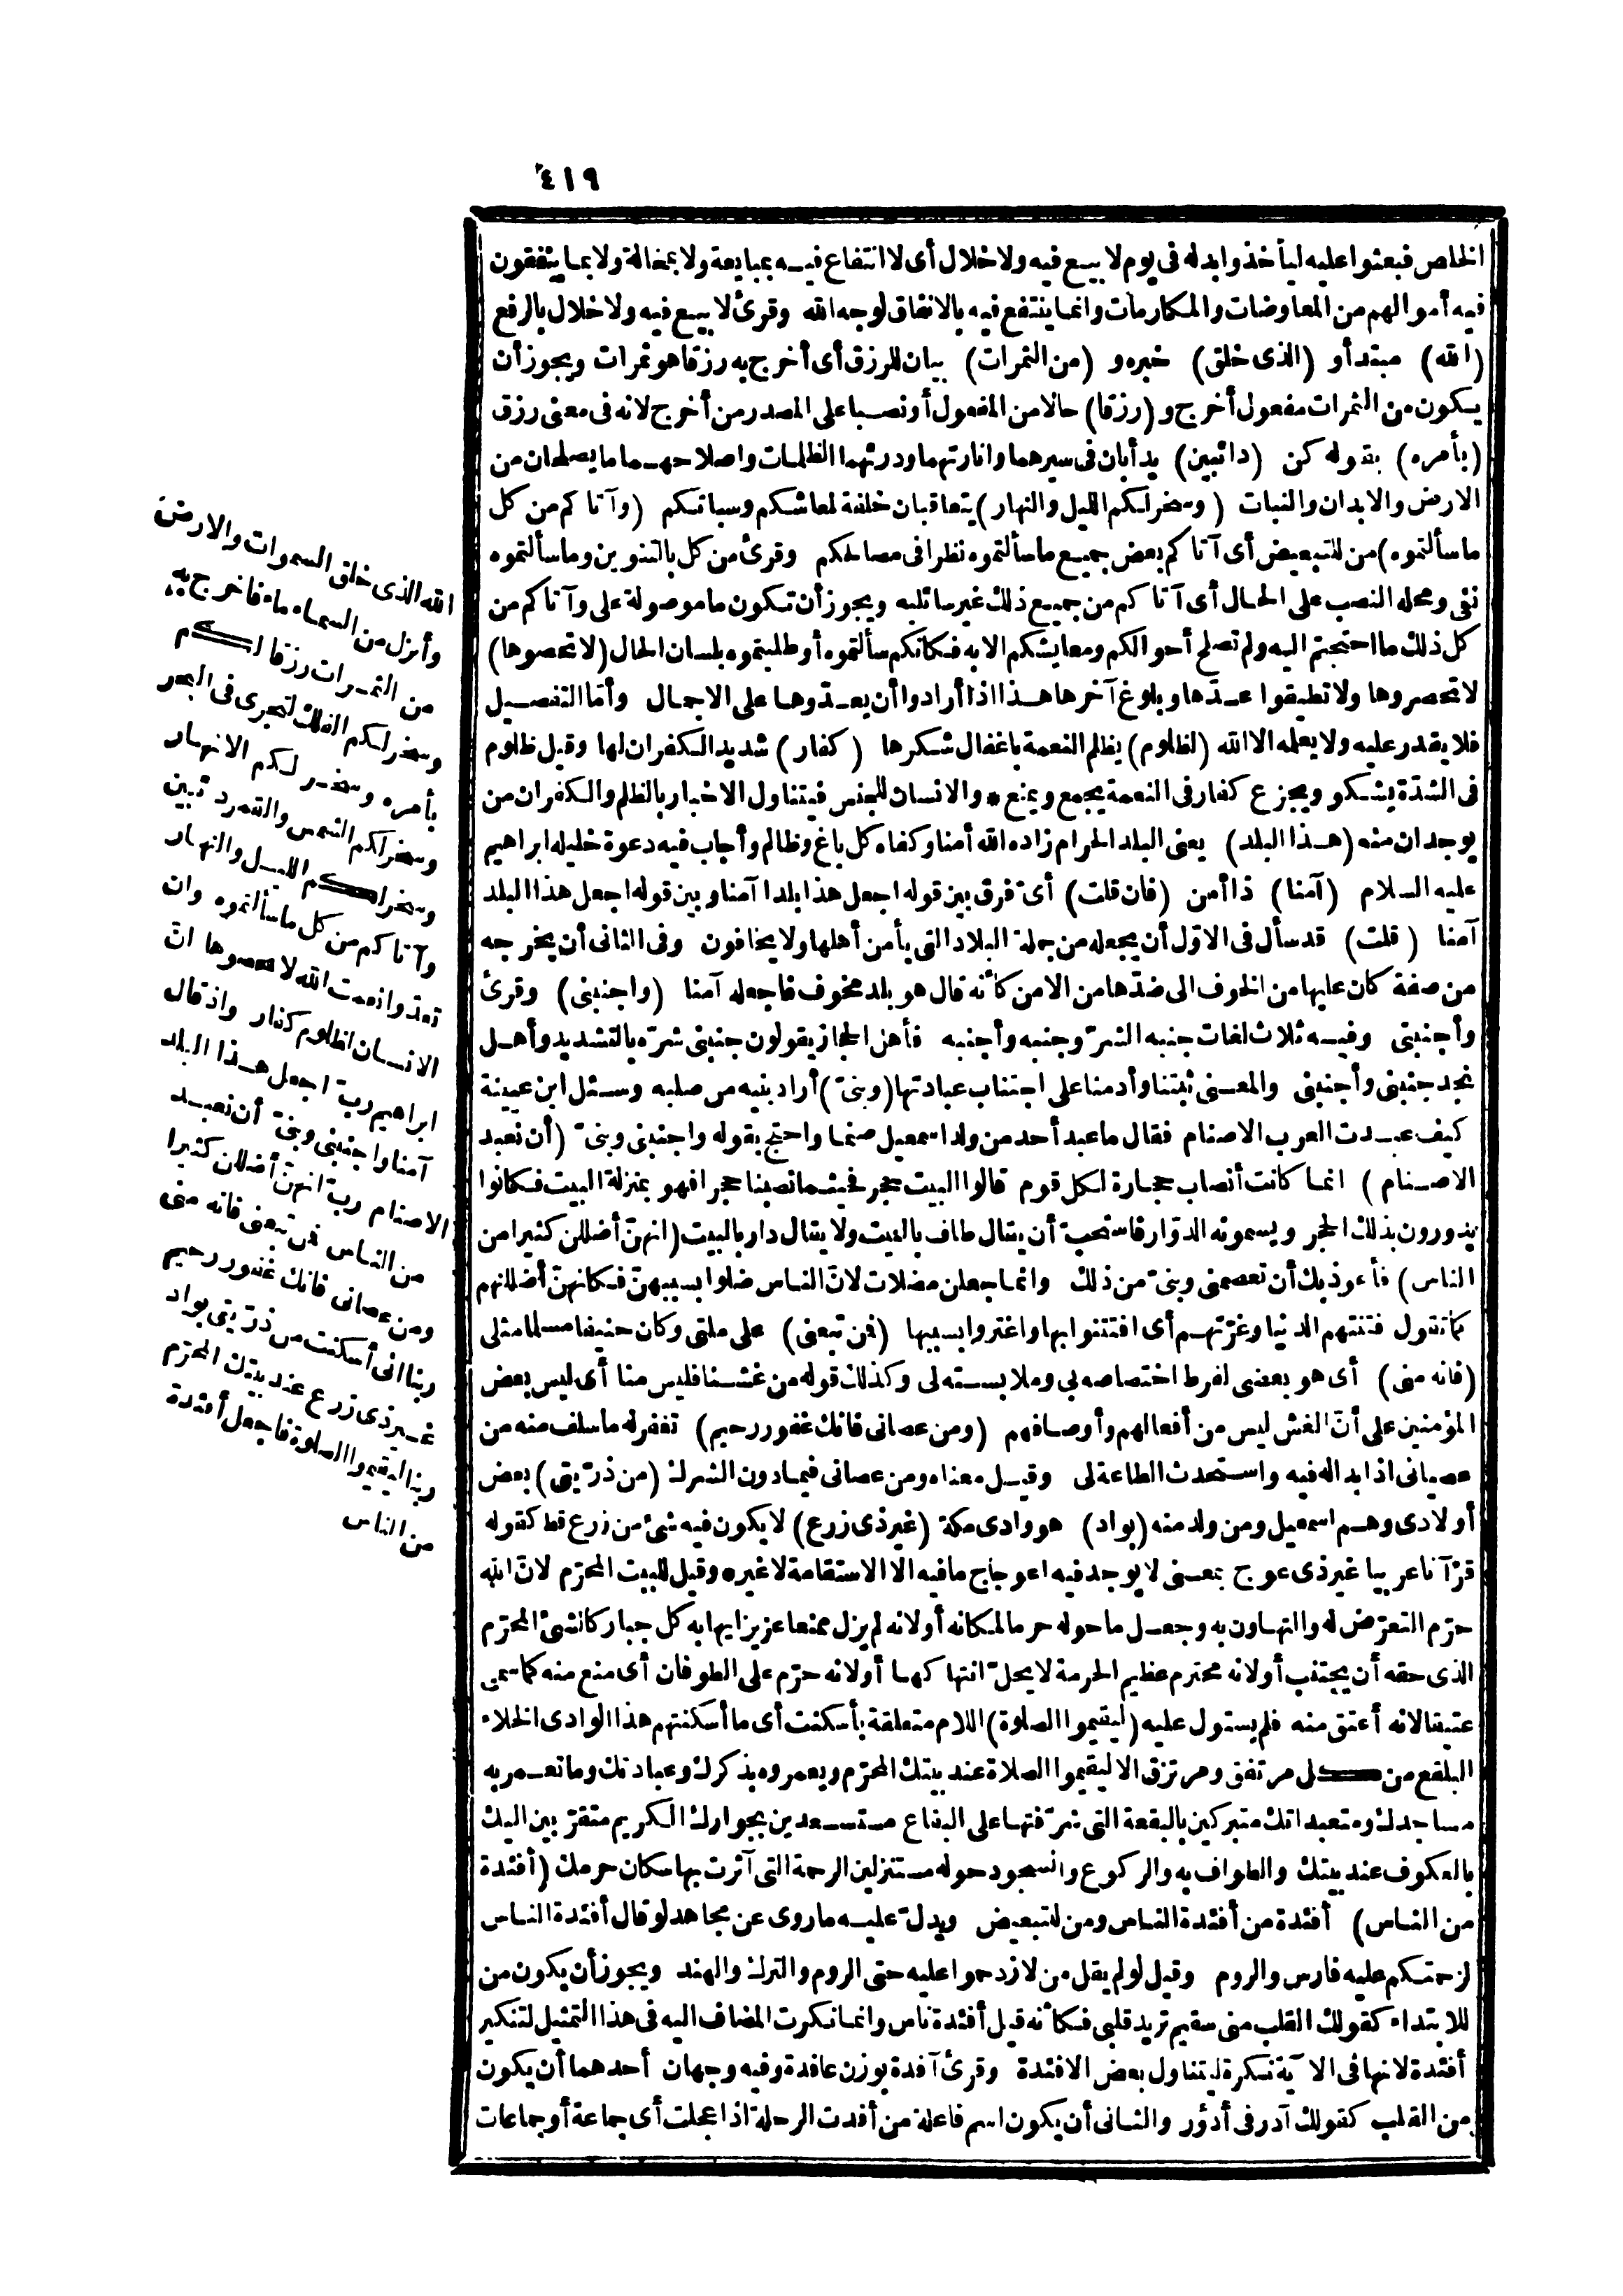 ٤١٩
الخاص فبعثوا عليه ليأخذوا بدله في يوم لا بيع فيه ولا خلال أى لا انتفاع فيه بمبايعة ولا بمخالة ولا بما ينفقون
فيه أموالهم من المعاوضات والمكارمات وانما ينتفع فيه بالانفاق لوجه الله وقرئ لا بيع فيه ولا خلال بالرفع
(الله) مبتدأ و (الذى خلق) خبره و (من الثمرات) بيان للرزق أى أخرج به رزقا هو ثمرات ويجوز أن
يكون من الثمرات مفعول أخرج و (رزقا) حالا من المفعول أو نصبا على المصدر من أخرج لانه فى معنى رزق
(بأمره) بقوله كن (دائبين) يدأبان فى سيرهما وانارتهما ودرئهما الظلمات واصلاحهما ما يصلحان من
الارض والابدان والنبات (وسخر لكم الليل والنهار) يتعاقبان خلفة لمعاشكم وسباتكم (وآتاكم من كل
ما سألتموه) من للتبعيض أى آتاكم بعض جميع ما سألتموه نظرا فى مصالحكم وقرئ من كل بالتنوين وما سألتموه
نفى ومحله النصب على الحال أى آتاكم من جميع ذلك غير سائليه ويجوز أن تكون ما موصولة على وآتاكم من
كل ذلك ما احتجتم اليه ولم تصلح أحوالكم ومعايشكم الا به فكأنكم سألتموه أو طلبتموه بلسان الحال (لا تحصوها)
لا تحصروها ولا تطيقوا عدّها وبلوغ آخرها هذا اذا أرادوا أن يعدّوها على الاجمال وأمّا التفصيل
فلا يقدر عليه ولا يعلمه الا الله (لظلوم) يظلم النعمة باغفال شكرها (كفار) شديد الكفران لها وقيل ظلوم
فى الشدّة يشكو ويجزع كفار فى النعمة يجمع ويمنع * والانسان للجنس فيتناول الاخبار بالظلم والكفران من
يوجدان منه (هذا البلد) يعنى البلد الحرام زاده الله أمنا وكفاه كل باغ وظالم وأجاب فيه دعوة خليله ابراهيم
عليه السلام (آمنا) ذا أمن (فان قلت) أىّ فرق بين قوله اجعل هذا بلدا آمنا وبين قوله اجعل هذا البلد
آمنا (قلت) قد سأل فى الاوّل أن يجعله من جملة البلاد التى يأمن أهلها ولا يخافون وفى الثانى أن يخرجه
من صفة كان عليها من الخوف الى ضدّها من الامن كأنه قال هو بلد مخوف فاجعله آمنا (واجنبنى) وقرئ
وأجنبنى وفيه ثلاث لغات جنبه الشرّ وجنبه وأجنبه فأهل الحجاز يقولون جنبنى شرّه بالتشديد وأهل
نجد جنبنى وأجنبنى والمعنى ثبتنا وأدمنا على اجتناب عبادتها (وبنىّ) أراد بنيه من صلبه وسئل ابن عيينة
كيف عبدت العرب الاصنام فقال ما عبد أحد من ولد اسمعيل صنما واحتج بقوله واجنبنى وبنىّ (أن نعبد
الاصنام) انما كانت أنصاب حجارة لكل قوم قالوا البيت حجر فحيثما نصبنا حجرا فهو بمنزلة البيت فكانوا
يدورون بذلك الحجر ويسمونه الدوّار فاستحب أن يقال طاف بالبيت ولا يقال دار بالبيت (انهنّ أضللن كثيرا من
الناس) فأعوذ بك أن تعصمنى وبنىّ من ذلك وانما جعلن مضلات لانّ الناس ضلوا بسببهنّ فكأنهنّ أضللنهم
كما تقول فتنتهم الدنيا وغرّتهم أى افتتنوا بها واغتروا بسببها (فمن تبعنى) على ملتى وكان حنيفا مسلما مثلى
(فانه منى) أى هو بعضى لفرط اختصاصه بى وملابسته لى وكذلك قوله من غشنا فليس منا أى ليس بعض
المؤمنين على أنّ الغش ليس من أفعالهم وأوصافهم (ومن عصانى فانك غفور رحيم) تغفر له ما سلف منه من
عصيانى اذا بدا له فيه واستحدث الطاعة لى وقيل معناه ومن عصانى فيما دون الشرك (من ذرّيتى) بعض
أولادى وهم اسمعيل ومن ولد منه (بواد) هو وادى مكة (غير ذى زرع) لا يكون فيه شئ من زرع قط كقوله
قرآنا عربيا غير ذى عوج بمعنى لا يوجد فيه اعوجاج ما فيه الا الاستقامة لا غيره وقيل للبيت المحرّم لانّ الله
حرّم التعرّض له والتهاون به وجعل ما حوله حرما لمكانه أو لانه لم يزل ممنعا عزيزا يهابه كل جبار كالشئ المحرّم
الذى حقه أن يجتنب أو لانه محترم عظيم الحرمة لا يحلّ انتهاكها أو لانه حرّم على الطوفان أى منع منه كما سمى
عتيقا لانه أعتق منه فلم يستول عليه (ليقيموا الصلوة) اللام متعلقة بأسكنت أى ما أسكنتهم هذا الوادى الخلاء
البلقع من كل مرتفق ومرتزق الا ليقيموا الصلاة عند بيتك المحرّم ويعمروه بذكرك وعبادتك وما تعمر به
مساجدك ومتعبداتك متبركين بالبقعة التى شرّفتها على البقاع مستسعدين بجوارك الكريم متقرّبين اليك
بالعكوف عند بيتك والطواف به والركوع والسجود حوله مستنزلين الرحمة التى آثرت بها سكان حرمك (أفئدة
من الناس) أفئدة من أفئدة الناس ومن للتبعيض ويدلّ عليه ما روى عن مجاهد لو قال أفئدة الناس
لزحمتكم عليه فارس والروم وقيل لو لم يقل من لازدحموا عليه حتى الروم والترك والهند ويجوز أن يكون من
للابتداء كقولك القلب منى سقيم تريد قلبى فكأنه قيل أفئدة ناس وانما نكرت المضاف اليه فى هذا التمثيل لتنكير
أفئدة لانها فى الآية نكرة ليتناول بعض الافئدة وقرئ آفدة بوزن عافدة وفيه وجهان أحدهما أن يكون
من القلب كقولك آدر فى أدؤر والثانى أن يكون اسم فاعلة من أفدت الرحلة اذا عجلت أى جماعة أو جماعات
الله الذى خلق السموات والارض
وأنزل من السماء ماء فاخرج به
من الثمرات رزقا لكم
وسخر لكم الفلك لتجرى فى البحر
بأمره وسخر لكم الانهار
وسخر لكم الشمس والقمر دائبين
وسخر لكم الليل والنهار
وآتاكم من كل ما سألتموه وان
تعدوا نعمت الله لا تحصوها انّ
الانسان لظلوم كفار واذ قال
ابراهيم ربّ اجعل هذا البلد
آمنا واجنبنى وبنىّ أن نعبد
الاصنام ربّ انهنّ أضللن كثيرا
من الناس فمن تبعنى فانه منى
ومن عصانى فانك غفور رحيم
ربنا انى أسكنت من ذرّيتى بواد
غير ذى زرع عند بيتك المحرّم
ربنا ليقيموا الصلوة فاجعل أفئدة
من الناس